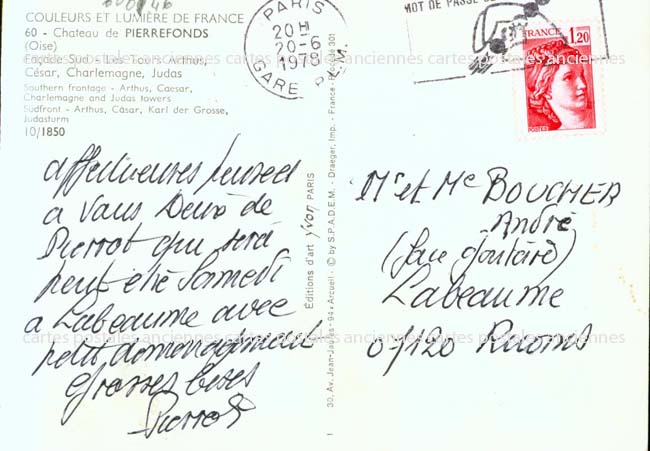 COULEURS ET LUMIÈRE DE FRANCE
60 - Chateau de PIERREFONDS
(Oise)
Façade Sud - Les Tours Arthus,
César, Charlemagne, Judas
Southern frontage - Arthus, Caesar,
Charlemagne and Judas towers
Südfront - Arthus, Cäsar, Karl der Grosse,
Judasturm
10/1850
PARIS
20 H
20-6
1978
GARE P.L.M.
MOT DE PASSE
FRANCE 1,20
POSTES
cartes postales anciennes cartes postales anciennes cartes postales anciennes
affectueuses pensées
a Vous Deux de
Pierrot qui sera
peut être Samedi
a Labeaume avec
petit demenagement
Grosses bises
Pierrot
Editions d'art Yvon PARIS
30, Av. Jean-Jaurès - 94 - Arcueil - © by S.P.A.D.E.M. - Draeger, Imp. - France - Procédé 301
Mr et Me BOUCHER
André
Labeaume
07120 Ruoms
cartes postales anciennes cartes postales anciennes cartes postales anciennes